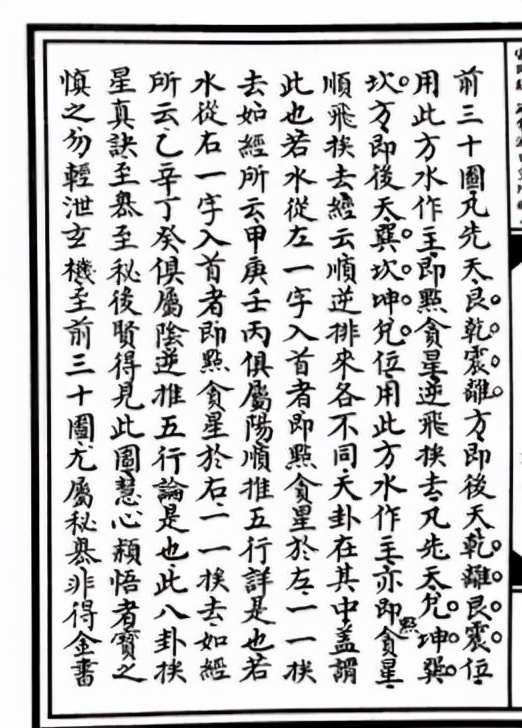 前三十圖凡先天艮乾震離方即後天乾離艮震位
用此方水作主即點貪星逆飛挨去凡先天兌坤巽
坎方即後天巽坎坤兌位用此方水作主亦即點貪星
順飛挨去經云順逆排來各不同天卦在其中盖謂
此也若水從左一字入首者即點貪星於左一一挨
去如經所云甲庚壬丙俱屬陽順推五行詳是也若
水從右一字入首者即點貪星於右一一挨去如經
所云乙辛丁癸俱屬陰逆推五行論是也此八卦挨
星真訣至㤗至秘後賢得見此圖慧心穎悟者寶之
慎之勿輕泄玄機至前三十圖尤屬秘㤗非得金書